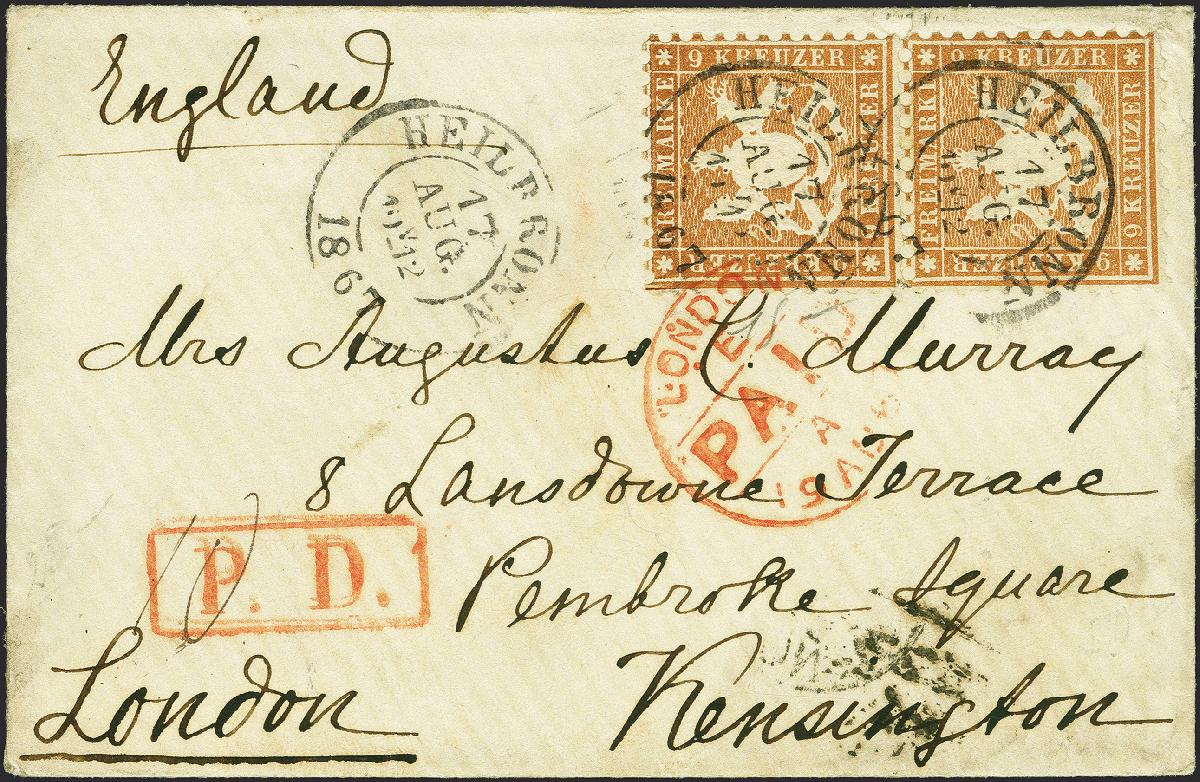 England
9 KREUZER
FREIMARKE
9 KREUZER
9 KREUZER
FREIMARKE
9 KREUZER
9 KREUZER
HEILBRONN
17
AUG.
1867
HEILBRONN
17
AUG.
1867
HEILBRONN
17
AUG.
LONDON
PAID
A
Mrs Augustus C. Murray
8 Lansdowne Terrace
P. D.
10
Pembroke Square
London
Kensington